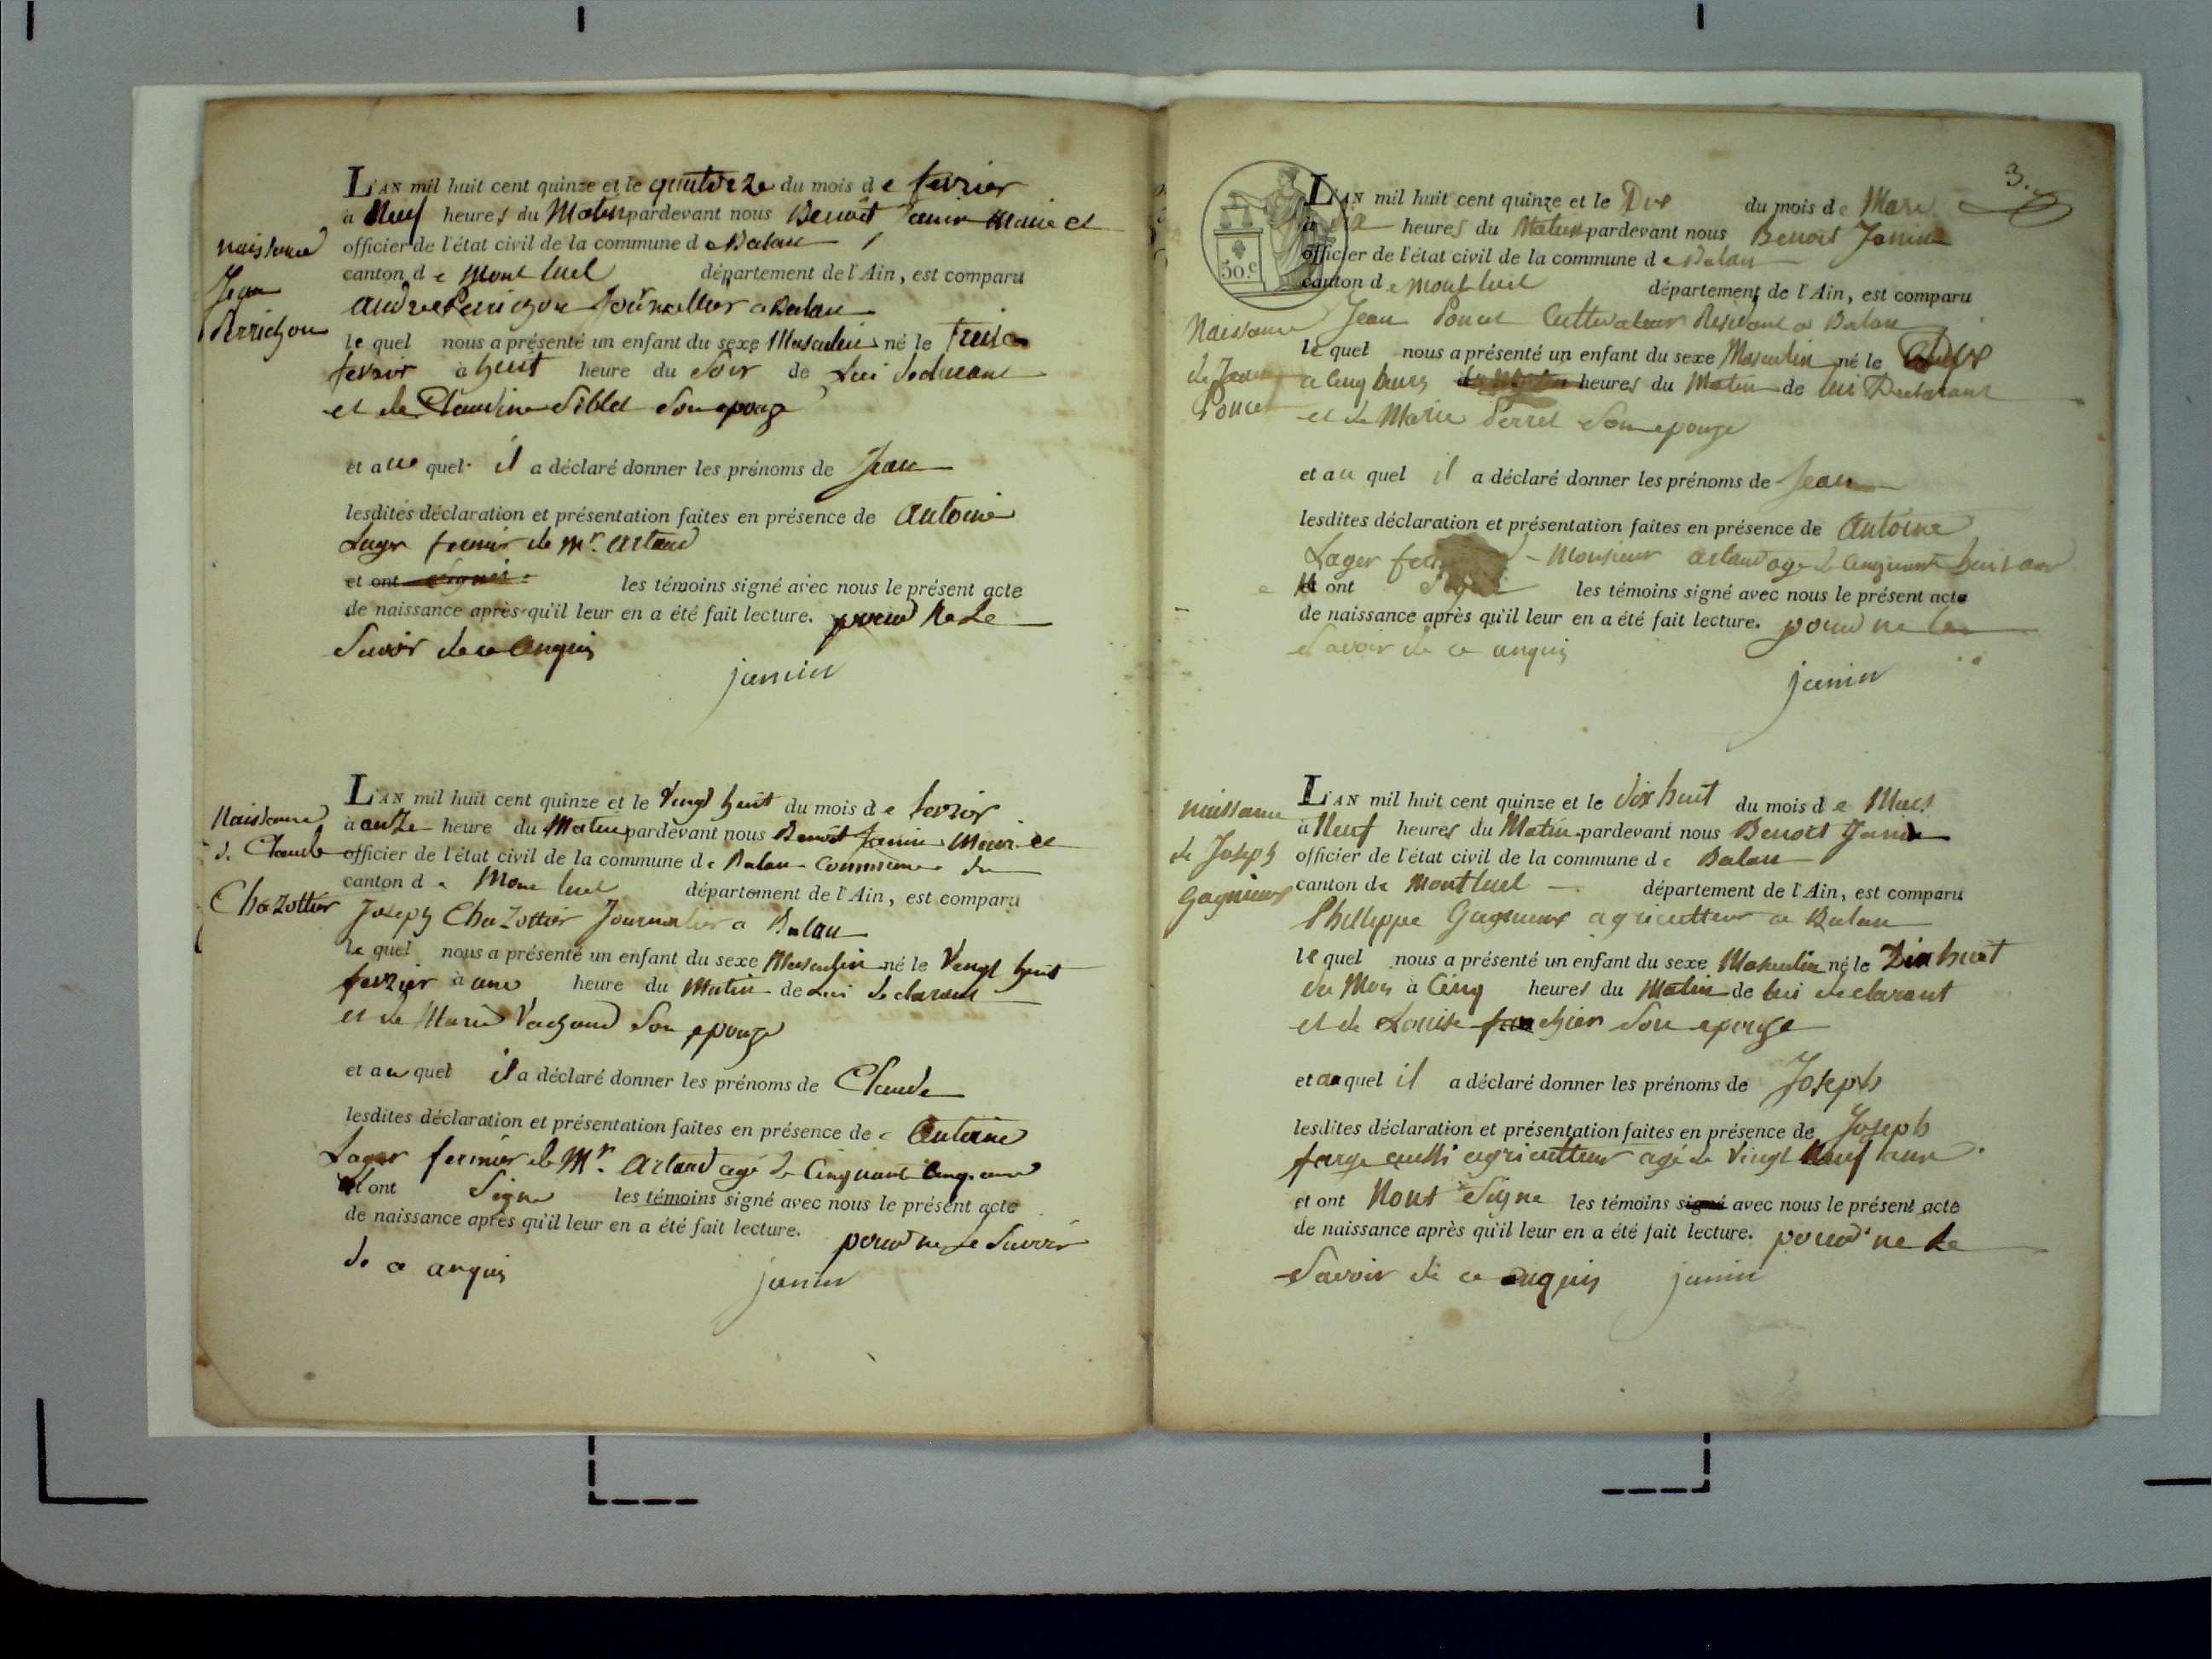 L'AN mil huit cent quinze et le quatorze du mois de fevrier
à Neuf heures du Matin pardevant nous Benoit Janin Maire et
officier de l'état civil de la commune de Balan
canton de Mont luel département de l'Ain, est comparu
naissance
Jean
Perrichon
andre Perrichon Journallier a Balan
le quel nous a présenté un enfant du sexe Masculin né le Treise
fevrier à huit heure du Soir de Lui declarant
et de Claudine Siblet Son epouze
et au quel il a déclaré donner les prénoms de Jean
lesdites déclaration et présentation faites en présence de Antoine
Lager fermier de Mr. Artaud
et ont signés les témoins signé avec nous le présent acte
de naissance après qu'il leur en a été fait lecture. pour ne Le
Savoir de ce enquis
janin
L'AN mil huit cent quinze et le Vingt huit du mois de fevrier
à onze heure du Matin pardevant nous Benoit Janin Maire et
officier de l'état civil de la commune de Balan Commune du
canton de Mont luel département de l'Ain, est comparu
Naissance
de Claude
Chazottier
Joseph Chazottier Journalier a Balan
le quel nous a présenté un enfant du sexe Masculin né le Vingt huit
fevrier à une heure du Matin de Lui declarant
et de Marie Vachand Son epouze
et au quel il a déclaré donner les prénoms de Claude
lesdites déclaration et présentation faites en présence de Antoine
Lager fermier de Mr. Artaud agé de Cinquante Cinq ans
et ont Signé les témoins signé avec nous le présent acte
de naissance après qu'il leur en a été fait lecture. pour ne Le Savoir
de ce enquis
janin
3.
50.c
L'AN mil huit cent quinze et le Dix du mois de Mars
à dix heures du Matin pardevant nous Benoit Janin
officier de l'état civil de la commune de Balan
canton de Mont luel département de l'Ain, est comparu
Naissance
de Jean
Poncet
Jean Poncet Cultivateur Residant a Balan
le quel nous a présenté un enfant du sexe Masculin né le
a Cinq heures heures du Matin de lui Declarant
et de Marie Perret Son epouze
et au quel il a déclaré donner les prénoms de Jean
lesdites déclaration et présentation faites en présence de Antoine
Lager Monsieur Artaud age de Cinquante huit ans
et ont Signé les témoins signé avec nous le présent acte
de naissance après qu'il leur en a été fait lecture. pour ne le
Savoir de ce enquis
janin
L'AN mil huit cent quinze et le Dix huit du mois de Mars
à Neuf heures du Matin pardevant nous Benoit Janin
officier de l'état civil de la commune de Balan
canton de Montluel département de l'Ain, est comparu
naissance
de Joseph
Gagnieux
Phillippe Gagnieux agriculteur a Balan
le quel nous a présenté un enfant du sexe Masculin né le Dix huit
du Mois à Cinq heures du Matin de lui declarant
et de Louise Son epouze
et au quel il a déclaré donner les prénoms de Joseph
lesdites déclaration et présentation faites en présence de Joseph
farge aussi agriculteur agé de Vingt Neuf ans
et ont Nous Signe les témoins signé avec nous le présent acte
de naissance après qu'il leur en a été fait lecture. pour ne Le
Savoir de ce enquis janin